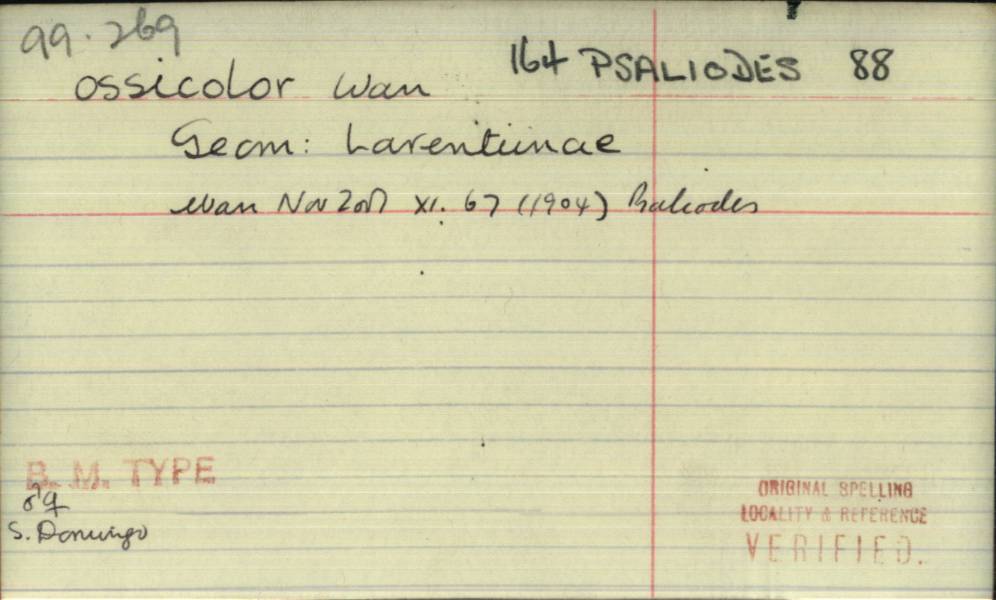 99.269
164 PSALIODES 88
ossicolor Warr
Geom: Larentiinae
Warr Nov Zool XI. 67 (1904) Psaliodes
B. M. TYPE
♂♀
S. Domingo
ORIGINAL SPELLING
LOCALITY & REFERENCE
VERIFIED.